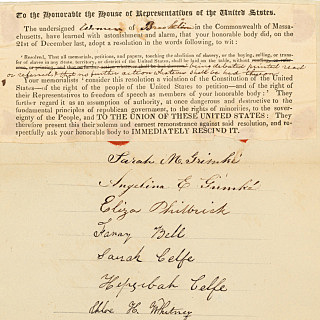 To the Honorable the House of Representatives of the United States.
The undersigned Women of Brookline in the Commonwealth of Massa-
chusetts, have learned with astonishment and alarm, that your honorable body did, on the
21st of December last, adopt a resolution in the words following, to wit:
"Resolved, That all memorials, petitions, and papers, touching the abolition of slavery, or the buying, selling, or trans-
fer of slaves in any state, territory, or district of the United States, shall be laid on the table, without
or referred & that no further action whatever shall be had thereon."
Your memorialists consider this resolution a violation of the Constitution of the United
States—of the right of the people of the United States to petition—and of the right of
their Representatives to freedom of speech as members of your honorable body: They
further regard it as an assumption of authority, at once dangerous and destructive to the
fundamental principles of republican government, to the rights of minorities, to the sover-
eignty of the People, and TO THE UNION OF THESE UNITED STATES: They
therefore present this their solemn and earnest remonstrance against said resolution, and re-
spectfully ask your honorable body to IMMEDIATELY RESCIND IT.
Sarah M. Grimké
Angelina E Grimké
Eliza Philbrick
Fanny Bell
Sarah Celfe
Hepzibah Celfe
Chloe H. Whitney